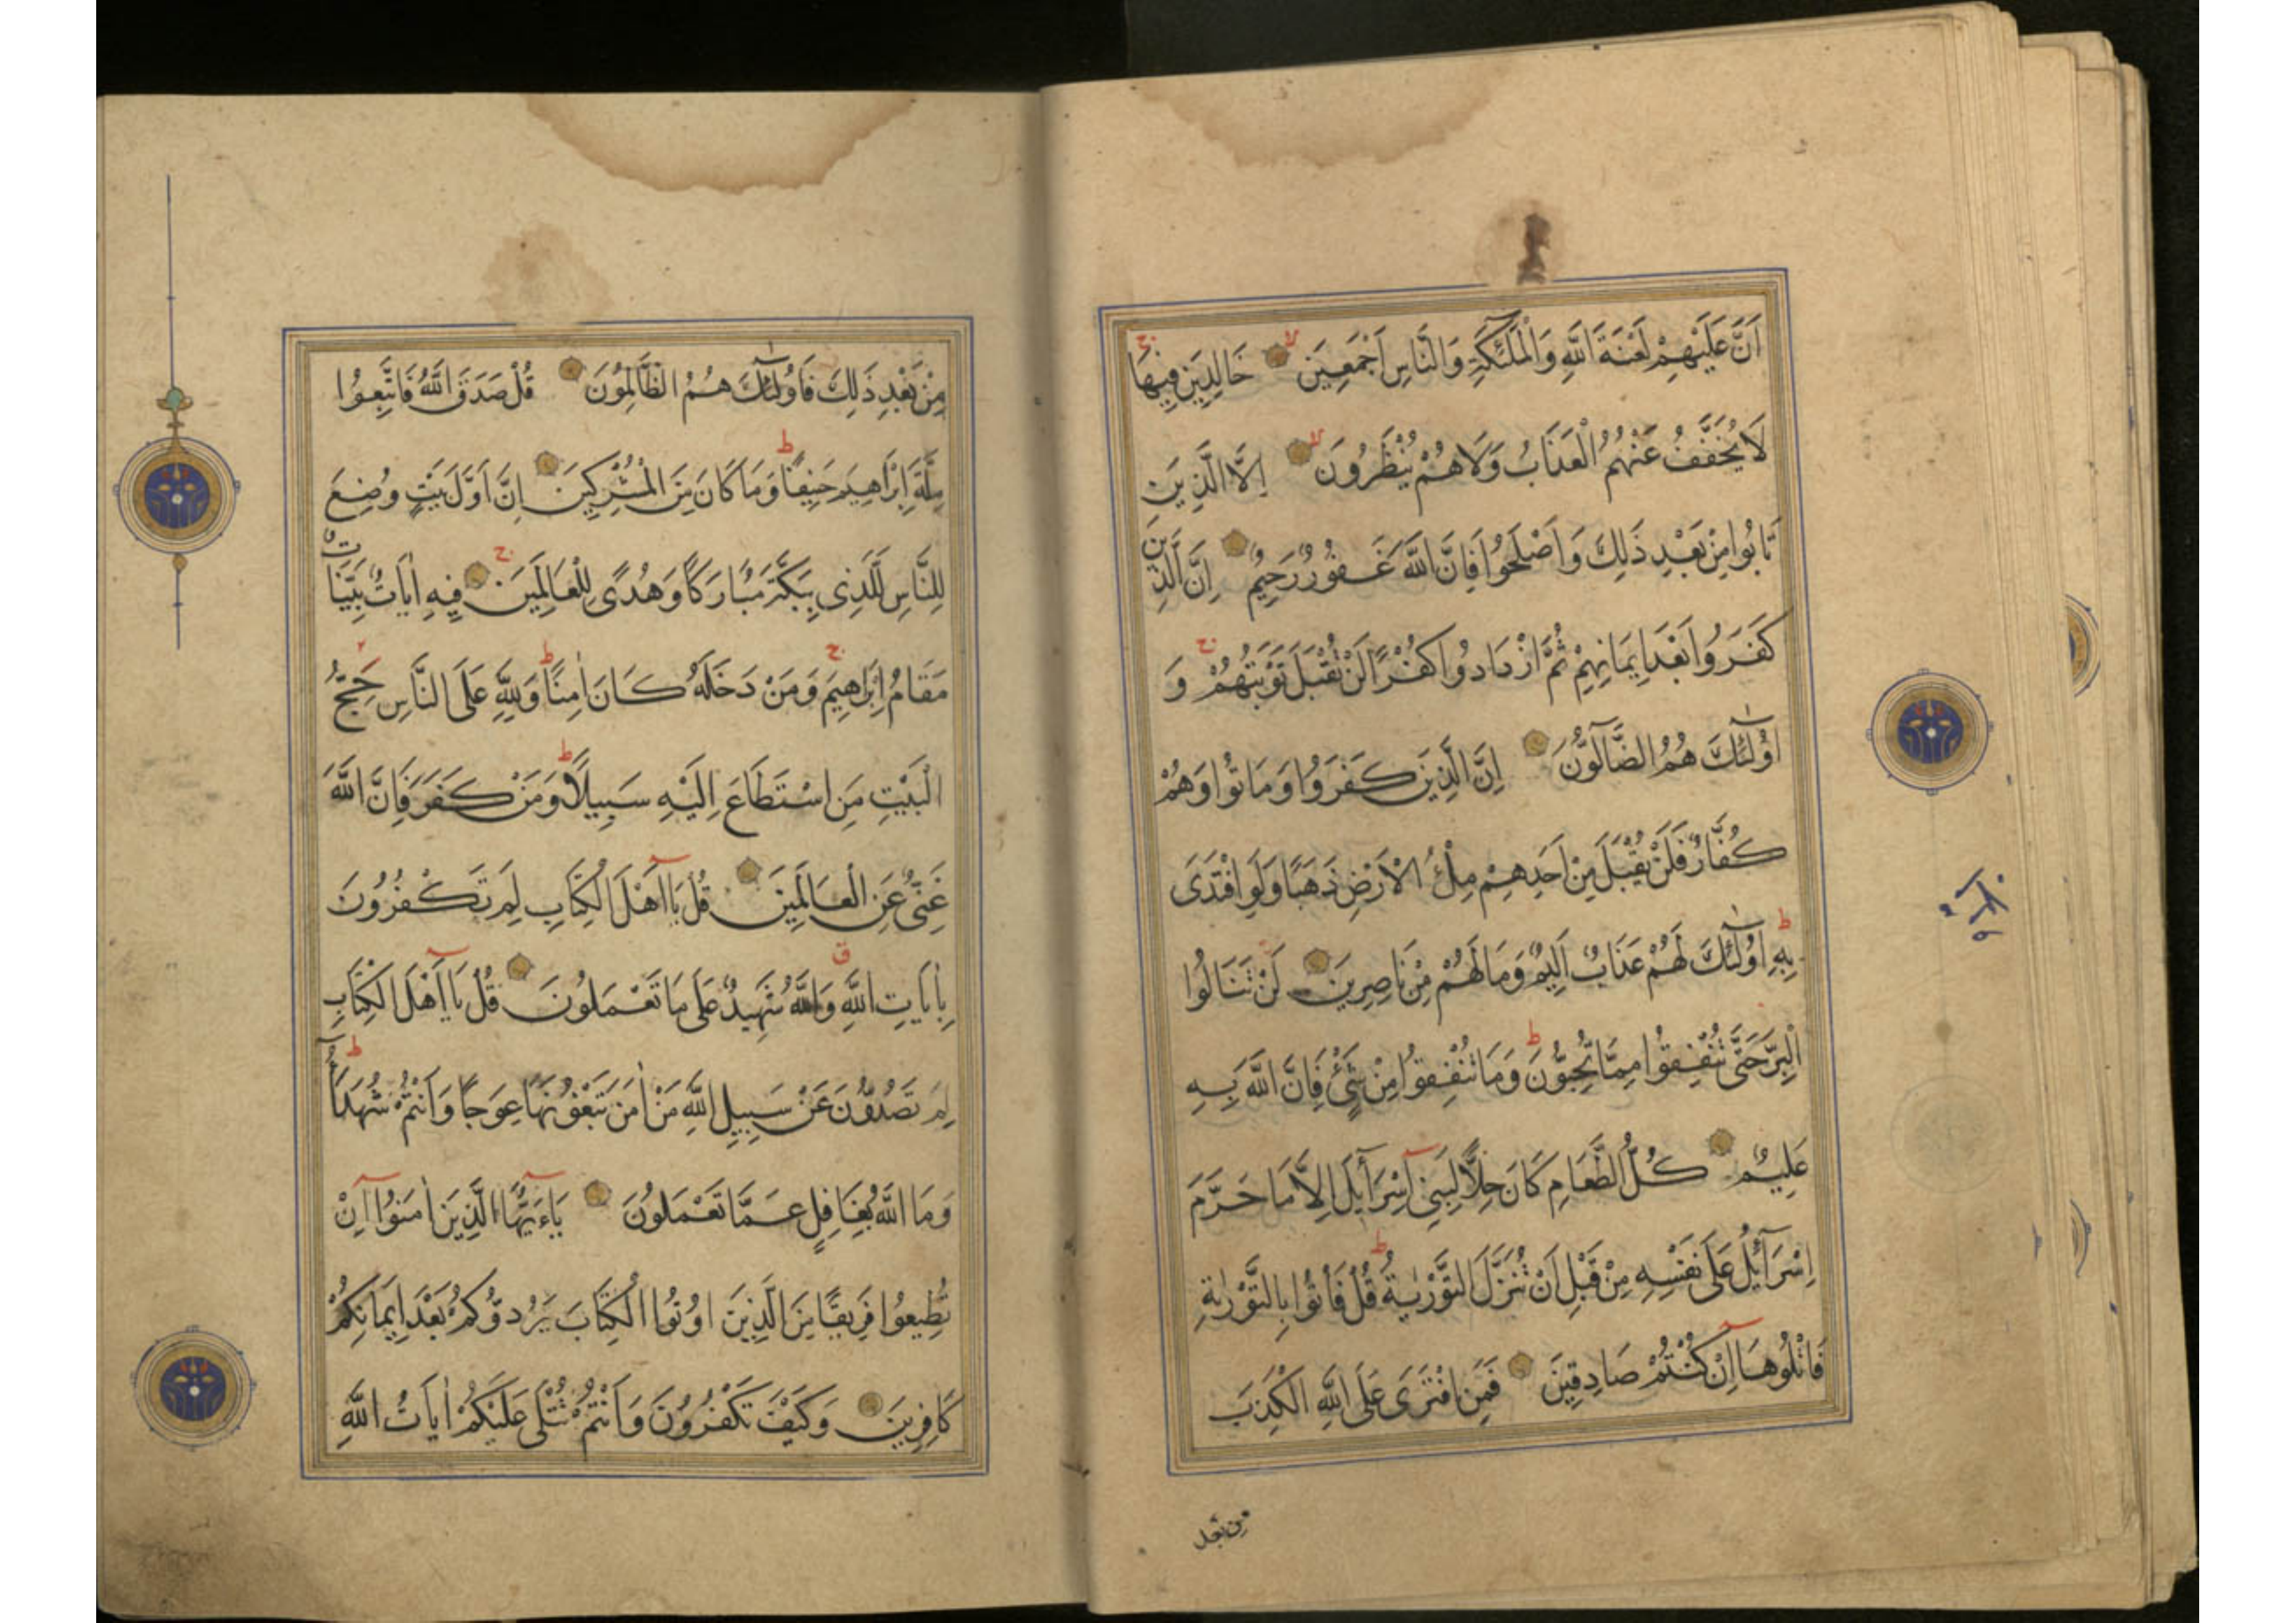 اَنَّ عَلَيْهِمْ لَعْنَةَ اللَّهِ وَالْمَلَئِكَةِ وَالنَّاسِ اَجْمَعِينَ لا خَالِدِينَ فِيهَا ج
لَا يُخَفَّفُ عَنْهُمُ الْعَذَابُ وَلَا هُمْ يُنْظَرُونَ لا اِلَّا الَّذِينَ
تَابُوا مِنْ بَعْدِ ذَلِكَ وَاَصْلَحُوا فَاِنَّ اللَّهَ غَفُورٌ رَحِيمٌ اِنَّ الَّذِينَ
كَفَرُوا بَعْدَ اِيمَانِهِمْ ثُمَّ ازْدَادُوا كُفْرًا لَنْ تُقْبَلَ تَوْبَتُهُمْ ج وَ
اُولَئِكَ هُمُ الضَّآلُّونَ اِنَّ الَّذِينَ كَفَرُوا وَمَاتُوا وَهُمْ
كُفَّارٌ فَلَنْ يُقْبَلَ مِنْ اَحَدِهِمْ مِلْءُ الْاَرْضِ ذَهَبًا وَلَوِ افْتَدَى
بِهِ ط اُولَئِكَ لَهُمْ عَذَابٌ اَلِيمٌ وَمَا لَهُمْ مِنْ نَاصِرِينَ لَنْ تَنَالُوا
الْبِرَّ حَتَّى تُنْفِقُوا مِمَّا تُحِبُّونَ ط وَمَا تُنْفِقُوا مِنْ شَىْءٍ فَاِنَّ اللَّهَ بِهِ
عَلِيمٌ كُلُّ الطَّعَامِ كَانَ حِلًّا لِبَنِى اِسْرَآئِلَ اِلَّا مَا حَرَّمَ
اِسْرَآئِلُ عَلَى نَفْسِهِ مِنْ قَبْلِ اَنْ تُنَزَّلَ التَّوْرٰيةُ ط قُلْ فَأْتُوا بِالتَّوْرٰيةِ
فَاتْلُوهَا اِنْ كُنْتُمْ صَادِقِينَ فَمَنِ افْتَرَى عَلَى اللَّهِ الْكَذِبَ
من بعد
مِنْ بَعْدِ ذَلِكَ فَاُولَئِكَ هُمُ الظَّالِمُونَ قُلْ صَدَقَ اللَّهُ فَاتَّبِعُوا
مِلَّةَ اِبْرَاهِيمَ حَنِيفًا ط وَمَا كَانَ مِنَ الْمُشْرِكِينَ اِنَّ اَوَّلَ بَيْتٍ وُضِعَ
لِلنَّاسِ لَلَّذِى بِبَكَّةَ مُبَارَكًا وَهُدًى لِلْعَالَمِينَ ج فِيهِ اٰيَاتٌ بَيِّنَاتٌ
مَقَامُ اِبْرَاهِيمَ ج وَمَنْ دَخَلَهُ كَانَ اٰمِنًا ط وَلِلَّهِ عَلَى النَّاسِ حِجُّ
الْبَيْتِ مَنِ اسْتَطَاعَ اِلَيْهِ سَبِيلًا ط وَمَنْ كَفَرَ فَاِنَّ اللَّهَ
غَنِىٌّ عَنِ الْعَالَمِينَ قُلْ يَا اَهْلَ الْكِتَابِ لِمَ تَكْفُرُونَ
بِاٰيَاتِ اللَّهِ ق وَاللَّهُ شَهِيدٌ عَلَى مَا تَعْمَلُونَ قُلْ يَا اَهْلَ الْكِتَابِ
لِمَ تَصُدُّونَ عَنْ سَبِيلِ اللَّهِ مَنْ اٰمَنَ تَبْغُونَهَا عِوَجًا وَاَنْتُمْ شُهَدَآءُ ط
وَمَا اللَّهُ بِغَافِلٍ عَمَّا تَعْمَلُونَ يَاءَيُّهَا الَّذِينَ اٰمَنُوا اِنْ
تُطِيعُوا فَرِيقًا مِنَ الَّذِينَ اُوتُوا الْكِتَابَ يَرُدُّوكُمْ بَعْدَ اِيمَانِكُمْ
كَافِرِينَ وَكَيْفَ تَكْفُرُونَ وَاَنْتُمْ تُتْلَى عَلَيْكُمْ اٰيَاتُ اللَّهِ